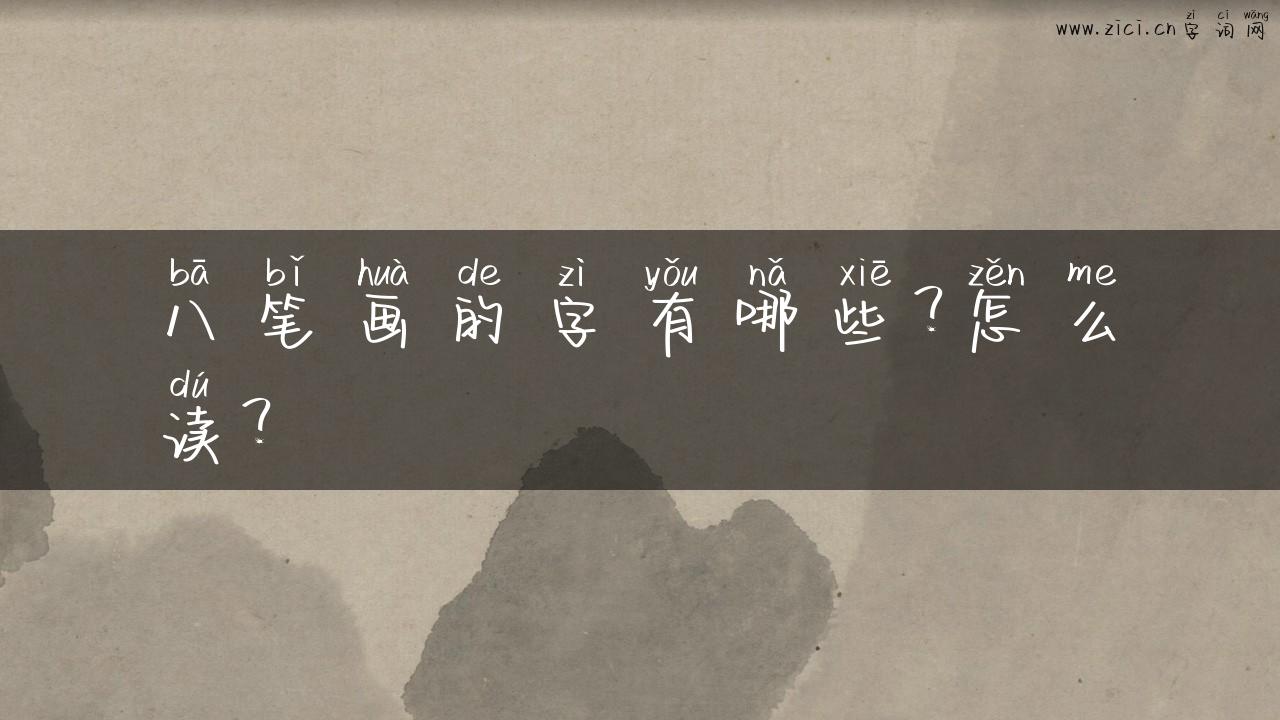 zì cí wǎng
www.zici.cn字词网
bā bǐ huà de zì yǒu nǎ xiē zěn me
八笔画的字有哪些？怎么
dú
读？